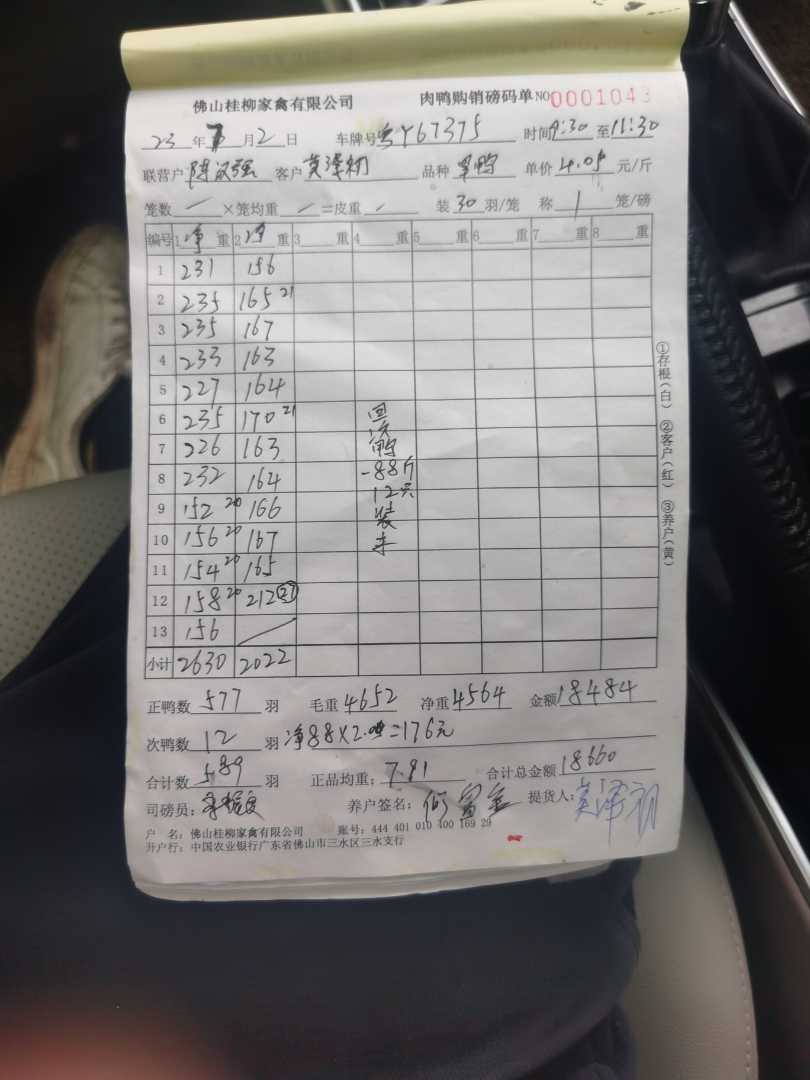 佛山桂柳家禽有限公司 肉鸭购销磅码单 NO 0001043
23 年 7 月 2 日 车牌号 Y67375 时间 9:30 至 11:30
联营户 陈汉强 客户 莫泽初 品种 单价 4.05 元/斤
笼数 / ×笼均重 / =皮重 / 装 30 羽/笼 称 1 笼/磅
编号 1 净 重 2 净 重 3 重 4 重 5 重 6 重 7 重 8 重
1 231 156
2 235 165 21
3 235 167
4 233 163
5 227 164
6 235 170 21
7 226 163
8 232 164
9 152 20 166
10 156 20 167
11 154 20 165
12 158 20 212 27
13 156 /
小计 2630 2022
回次鸭
-88斤
12只
装车
①存根(白) ②客户(红) ③养户(黄)
正鸭数 577 羽 毛重 4652 净重 4564 金额 18484
次鸭数 12 羽 净88×2.00=176元
合计数 589 羽 正品均重: 7.91 合计总金额 18660
司磅员: 养户签名: 何富全 提货人: 莫泽初
户 名: 佛山桂柳家禽有限公司 账号: 444 401 010 400 169 29
开户行: 中国农业银行广东省佛山市三水区三水支行